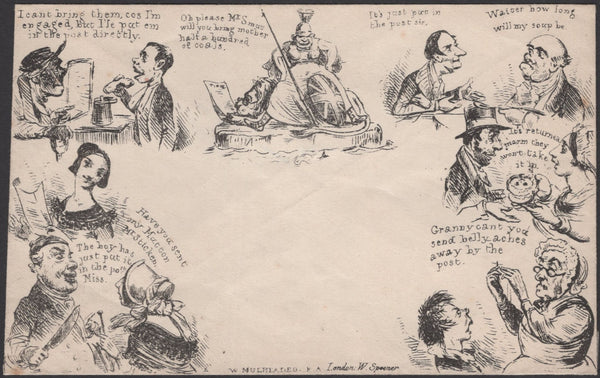 I cant bring them, cos I'm
engaged, But I'le put em
in the post directly.
Oh please Mr Snow
will you bring mother
half a hundred
of coals.
It's just put in
the post sir.
Waiter how long
will my soup be.
It's returned
marm they
wont take
it in.
Have you sent
my Mutton
Mr Stickem
The boy has
just put it
in the post
Miss.
Granny cant you
send belly aches
away by the
post.
London W. Spooner